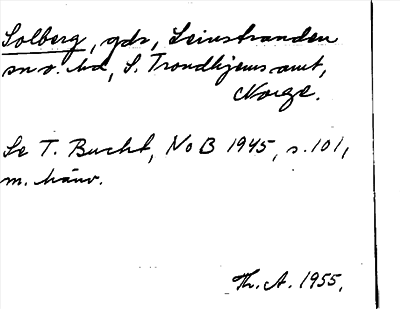 Solberg, gdr, Leinstranden
sn o. hd, S. Trondhjems amt,
Norge.
Se T. Bucht, NoB 1945, s. 101,
m. hänv.
Th. A. 1955.